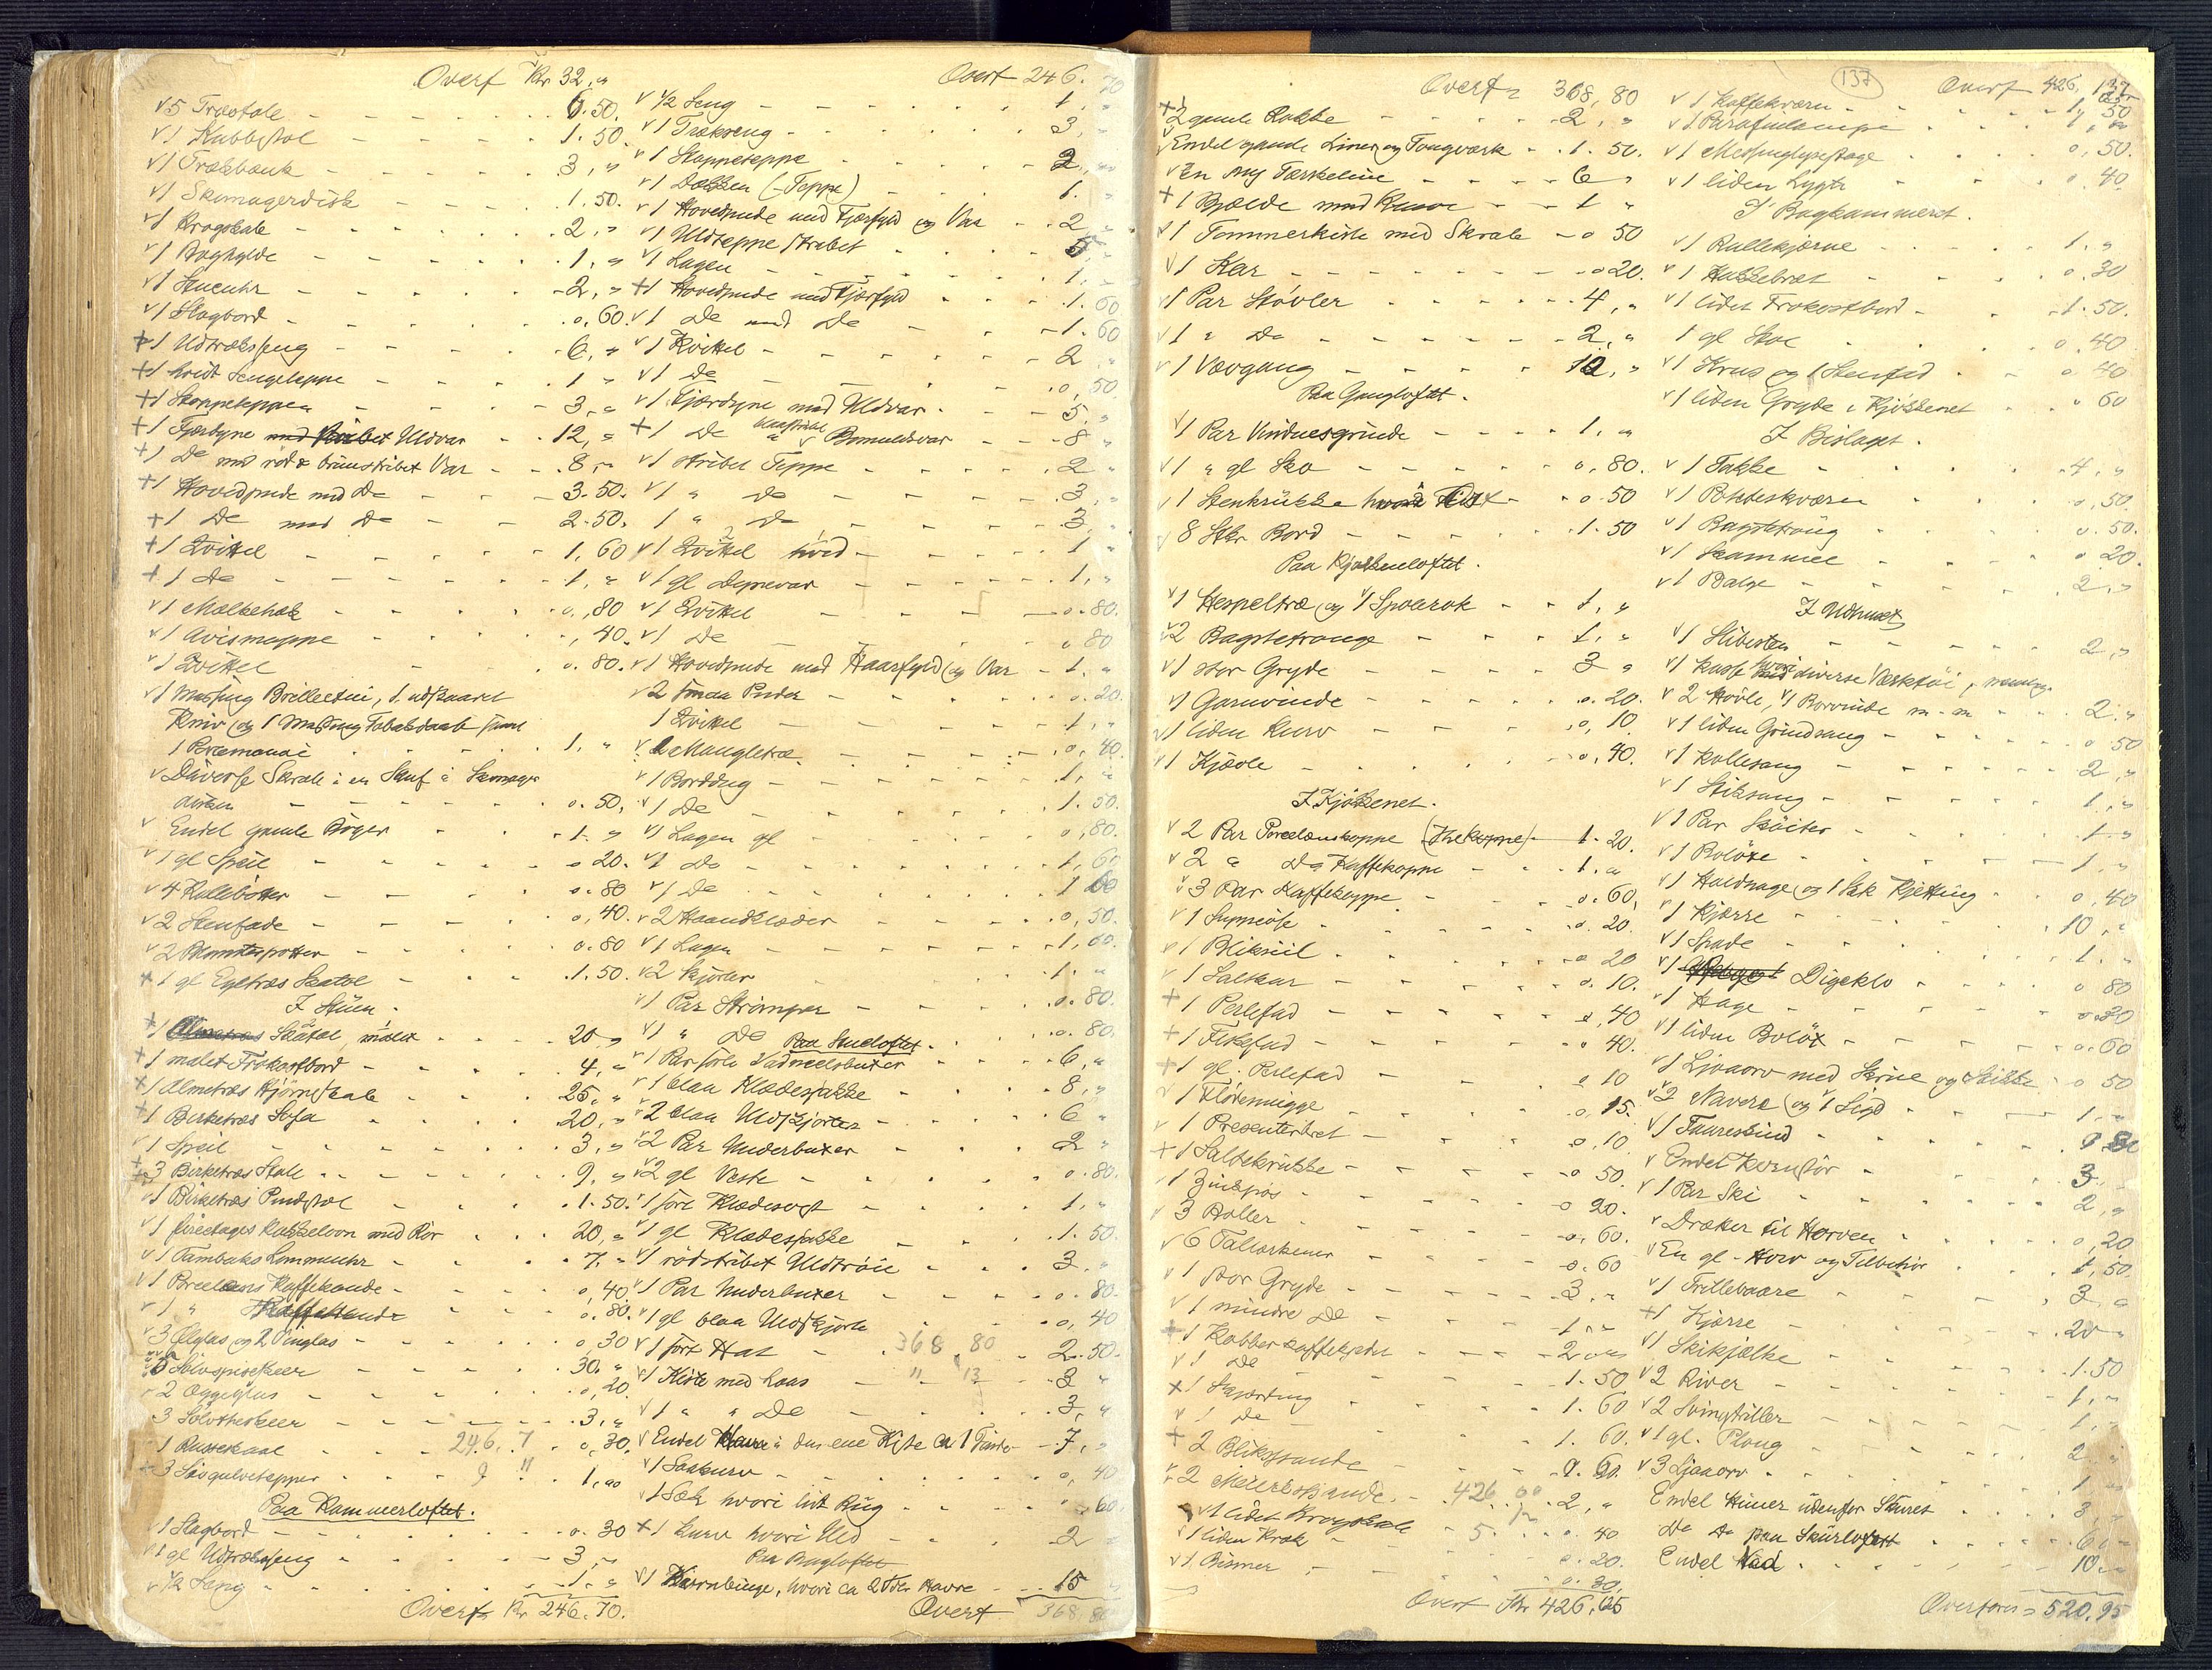 Overf Kr 32,"
v 5 Træstole - - - 6.50.
v 1 Kubbestol - - - 1.50.
v 1 Trækbænk - - - 3,"
v 1 Skomagerdisk - - - 1.50.
v 1 Krogskab - - - 2,"
v 1 Boghylde - - - 1,"
v 1 Stueuhr - - - 2,"
v 1 Slagbord - - - 0,60.
+ 1 Udtræksseng - - - 6,"
+ 1 hvidt Sengeteppe - - - 1 "
+ 1 Stoppeteppe - - - 3,"
+ 1 Fjærdyne Uldvar - - 12,"
+ 1 Do med rød & brunstribet Var - - 8,"
+ 1 Hovedpude med Do - - 3.50.
+ 1 Do med Do - - 2.50.
+ 1 Kvittel - - - 1,60
+ 1 Do - - - 1,"
v 1 Melkeholk - - - 0.,80
v 1 Avismappe - - - ,40.
v 1 Kvittel - - - 0.80.
v 1 Messing Brilleetui, 1 udskaaret
Kniv og 1 Messing Tobaksdaase samt
1 Portemonai - - - 1,"
v Diverse Skrab i en Skuf i Skomager
disken - - - 0.50.
v Endel gamle Bøger - - - 1. "
v 1 gl Speil - - - 0 20.
v 4 Kullebøtter - - - 0.80
v 2 Stenfade - - - 0,40.
v 2 Blomsterpotter - - - 0.80
+ 1 gl Egetræs Skatol - - - 1.50.
I Stuen.
+ 1 Skatol, malet - - - 20 "
+ 1 malet Frokostbord - - - 4,"
+ 1 Almetræs Hjørneskab - - - 25,"
+ 1 Birketræs Sofa - - - 20,"
v 1 Speil - - - 3,"
+ 3 Birketræs Stole - - - 9,"
v 1 Birketræs Pindstol - - - 1.50.
v 1 fireetages Kakkelovn med Rør - - - 20,"
v 1 Tambaks Lommeuhr - - - 7."
v 1 Porcelæns Kaffekande - - - 0,40
v 1 " - - - 0.80.
v 3 Ølglas og 2 Vinglas - - - 0,30
5 Sølvspiseskeer - - - 30."
v 2 Æggeglas - - - 0,20.
3 Sølvtheskeer - - - 3,"
1 Russeskaal - - 246.7 - 0,30.
+ 3 Gulvtepper - - 9 " - 1,00
Paa Kammerloftet.
1 Slagbord - - - 0.30
v 1 gl Udtræksseng - - - 3,"
v ½ Seng - - - 1."
Overf Kr 246.70.
Overf 246.70
v ½ Seng - - - 1,"
v 1 Trækseng - - - 3,"
v 1 Stoppeteppe - - - 2,"
v 1 Dækken (-Teppe) - - - 1."
v 1 Hovedpude med Fjærfyld og Var - - 2
v 1 Uldteppe stribet - - - 5
v 1 Lagen - - - 1."
+ 1 Hovedpude med Fjærfyld - - - 1.60
v 1 Do med Do - - - 1.60
v 1 Kvittel - - - 2
v 1 Do - - - 0,50
v 1 Fjærdyne med Uldvar - - - 5."
+ 1 Do Bomuldsvar - - - 8 "
v 1 stribet Teppe - - - 2
v 1 " Do - - - 3,
1 " Do - - - 3
v 1 Kvittel hvid - - - 1
v 1 gl Dynevar - - - 1,"
v 1 Kvittel - - - 0.80.
v 1 Do - - - 0 80
v 1 Hovedpude med Haarfyld og Var - - 1."
v 2 smaa Puder - - - 0.20.
1 Kvittel - - - 1,"
v 2 Mangletræ - - - 0,40.
v 1 Borddug - - - 1,"
v 1 Do - - - 1.50.
v 1 Lagen gl - - - 0,80.
v 1 Do - - - 1,60
v 1 Do - - - 1 60
v 2 Haandklæder - - - 0,50.
v 1 Lagen - - - 1,60.
v 2 Skjorter - - - 1. "
v 1 Par Strømper - - - 0.80.
v 1 " Do - - - 0.80.
Paa Stueloftet.
v 1 Par sorte Vadmelsbuxer - - - 6,"
v 1 blaa Klædesjakke - - - 8,"
v 2 blaa Uldskjorter - - - 6 "
v 2 Par Underbuxer - - - 2 "
v 2 gl Veste - - - 0.80.
v 1 sort Klædesvest - - - 1,"
v 1 gl Klædesjakke - - - 1.50.
v 1 rødstribet Uldtrøie - - - 3."
v 1 Par Underbuxer - - - 0.80.
v 1 gl blaa Uldskjorte - - - 0,40
v 1 sort Hat - 368,80 - 2.50.
v 1 Kiste med Laas - " 13 - 3 "
v 1 " " Do - - - 3,"
v Endel Havre i den ene Kiste ca 1 Tønde - 7,"
v 1 Saakurv - - - 0,40
v 1 Sæk hvori lidt Rug - - - 0,60.
+ 1 Kurv hvori Uld - - - 2
Paa Bagloftet
v 1 Kornbinge, hvori ca 2 Tdr Havre - - 15
Overf 368,80
Overf 368,80
+ 2 gamle Rokke - - - 2,"
v Endel gamle Liner og Tougværk - - 1.50.
v En ny Tærskeline - - - 6 "
+ 1 Bjælde med - - - 1 "
v 1 Tømmerkiste med Skrab - 0 50
v 1 Kar - - - 0 20.
v 1 Par Støvler - - - 4,"
v 1 " Do - - - 2,"
v 1 Vævgang - - - 12,"
Paa Gangloftet.
v 1 Par Vinduesgrinde - - - 1."
v 1 " gl Sko - - - 0,80.
v 1 Stenkrukke - - 0.50
v 8 Stkr Bord - - - 1.50
Paa Kjøkkenloftet.
v 1 Hespeltræ og v 1 Spolerok - - 1,"
v 2 Bagstetrauge - - - 1."
v 1 stor Gryde - - - 3 "
v 1 Garnvinde - - - 0.20.
v 1 liden Kurv - - - 0,10.
v 1 Kjævle - - - 0,40.
I Kjøkkenet.
v 2 Par Porcelænskoppe (Thekoppe) - 1.20.
v 2 " Do Kaffekoppe - - 1."
v 3 Par Kaffekoppe - - - 0.60,
v 1 Suppeøse - - - 0.20.
v 1 Bliksiil - - - 0 20
v 1 Saltkar - - - 0.10.
+ 1 Perlefad - - - 0,40
+ 1 Fiskefad - - - 0 40.
+ 1 gl. Perlefad - - - 0 10
v 1 Fløtemugge - - - 0,15.
v 1 Presenterbret - - - 0.10.
+ 1 Saltekrukke - - - 0 50.
v 1 Zinkpøs - - - 0 20.
v 3 Boller - - - 0,60.
v 6 Tallerkener - - - 0.60
v 1 stor Gryde - - - 3."
v 1 mindre Do - - - 1,"
+ 1 Kobberkaffekjedel - - - 2,00
v 1 Do - - - 1.50
+ 1 - - - 1.60
v 1 Do - - - 1.60.
+ 2 Blikspande - - - 0.60.
v 2 Melkespande - 426,60 - 2,"
v 1 lidet Krogskab - 5. - 0.40
v 1 liden Krak - - - 0.20.
v 1 Bismer - - - 0.30.
Overf Kr 426,05
137
Overf 426, 05
137
v 1 Kaffekværn - - - 1,50
v 1 Parafinlampe - - - 1,"
v 1 Messinglysestage - - - 0,50.
v 1 liden Lygte - - - 0,40
I Bagkammeret.
v 1 Rullekjærne - - - 1,"
v 1 Hakkebræt - - - 0.30
v 1 lidet Frokostbord - - - 1.50.
1 gl Stol - - - 0,40
v 1 Krus og 1 Stenfad - - - 0 40
v 1 liden Gryde i Kjøkkenet - - - " 60
I Bislaget.
v 1 Takke - - - 4,"
v 1 Potteskværn - - - 0,50.
v 1 Bagstetraug - - - 0.50.
v 1 Skammel - - - 0 20.
v 1 Balge - - - 2,"
I Udhuset
v 1 Slibesten - - - 2,"
v 1 Kasse hvori diverse Værktøi, nemlig
v 2 Høvle, v 1 Borvinde m-m - - 2."
v 1 liden Grindsaug - - - 0 50
v 1 Kollesaug - - - 2,"
v 1 Stiksaug - - - 1,"
v 1 Par Skøiter - - - 1 "
v 1 Boløxe - - - 1,"
v 1 Huldnage og 1 Stk Kjetting - 0,40
v 1 Kjærre - - - 10,"
v 1 Spade - - - 1."
v 1 Digeklo - - - 0 80
v 1 Hage - - - 0.20
v 1 liden Boløx - - - 0.60
v 1 Ljaaorv med Skrue og Stikke - 0 50
v 2 Navere og v 1 Sigd - - - 1,"
v 1 Faureskind - - - 0 80
v Endel Kvensfør - - - 3
v 1 Par Ski - - - 2,"
v Dræker til Horven - - - 0,20
v En gl - Horv og Tilbehør - - - 1,50.
v 1 Trillebaare - - - 3,"
+ 1 Kjærre - - - 20 "
v 1 Skikjælke - - - 1.50
v 2 River - - - 1,"
v 2 Svingtriller - - - 1,"
v 1 gl. Ploug - - - 2,"
v 3 Ljaaorv - - - 1 "
Endel Huner udenfor Skuret - - 3,"
Do Do paa Skurloftet - - 6,"
Endel Ved - - - 10."
Overføres = 520,95